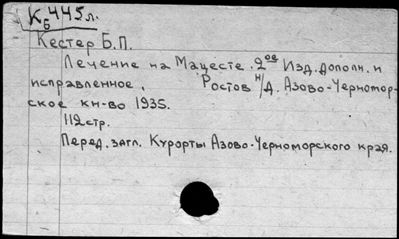 К 445л.
Б
Кестер Б.П.
Лечение на Мацесте. 2ое Изд. дополн. и
исправленное. Ростов н/Д. Азово-Черномор-
ское кн-во 1935.
112 стр.
Перед. загл. Курорты Азово-Черноморского края.